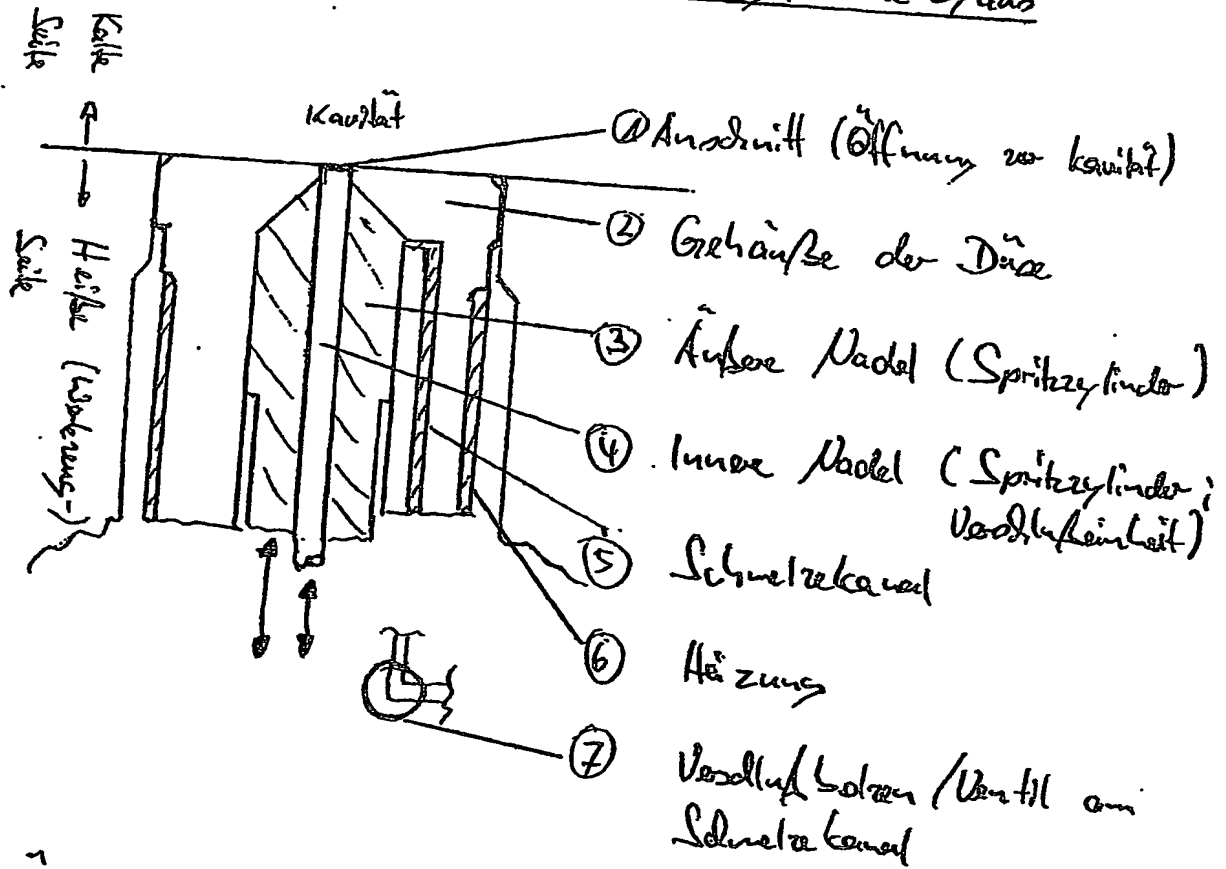 Kalte
Seite
Kavität
① Anschnitt (Öffnung zur Kavität)
② Gehäuße der Düse
③ Äußere Nadel (Spritzzylinder)
④ Innere Nadel (Spritzzylinder;
Verschlußeinheit)
⑤ Schmelzekanal
⑥ Heizung
⑦ Verschlußbolzen / Ventil am
Schmelzekanal
Heiße (Werkzeug-)
Seite